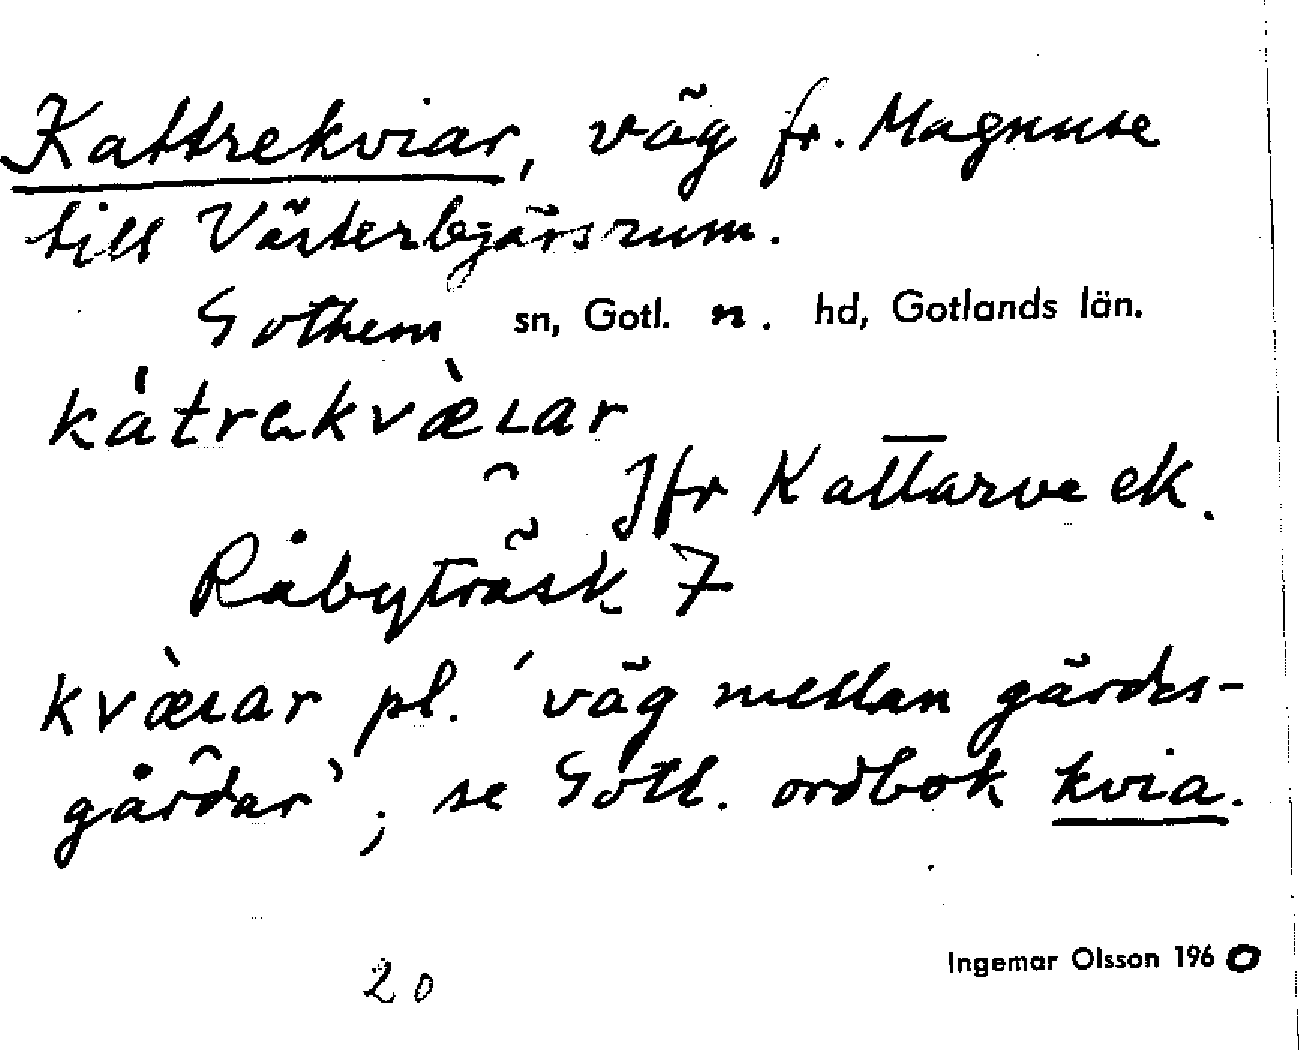 Kattrekviar, väg fr. Magnuse
till Västerbjärsrum.
Gothem sn, Gotl. n. hd, Gotlands län.
kàtrekvæ̀ıar
Jfr Kattarve ek.
Råbyträsk 7
kvæ̀ıar pl. 'väg mellan gärdes-
gårdar'; se Gotl. ordbok kvia.
Ingemar Olsson 1960
20